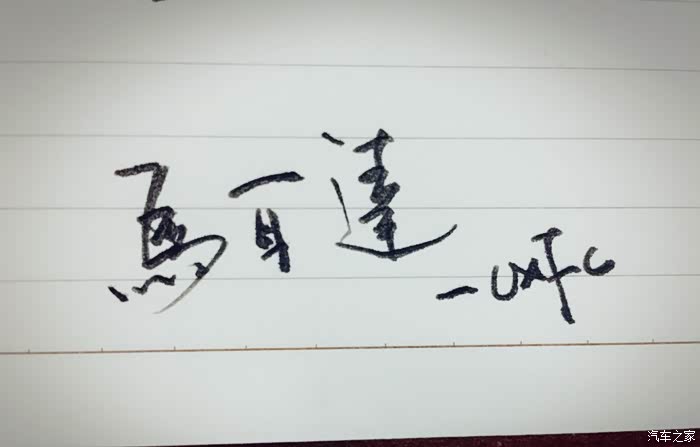 馬自達
汽车之家